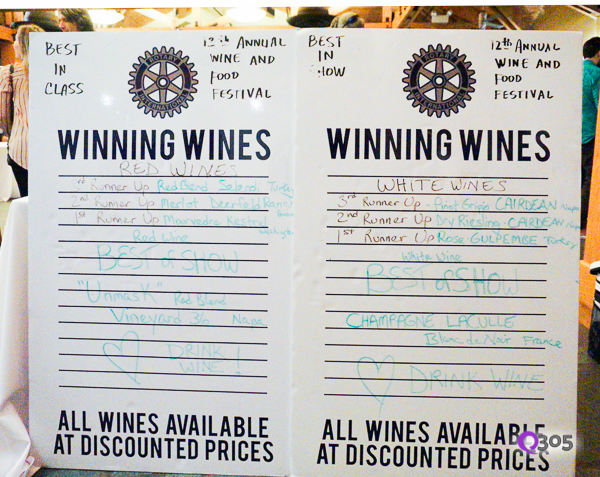 BEST
IN
CLASS
12th ANNUAL
WINE AND
FOOD
FESTIVAL
ROTARY
INTERNATIONAL
WINNING WINES
RED WINES
3rd Runner Up Red Blend Turkey
2nd Runner Up Merlot Deerfield Ranch
1st Runner Up Mourvedre Kestrel
Washington
Red Wine
BEST of SHOW
"UnmasK" Red Blend
Vineyard 36 Napa
DRINK
WINE!
ALL WINES AVAILABLE
AT DISCOUNTED PRICES
BEST
IN
SHOW
12th ANNUAL
WINE AND
FOOD
FESTIVAL
ROTARY
INTERNATIONAL
WINNING WINES
WHITE WINES
3rd Runner Up - Pinot Grigio CAIRDEAN Napa
2nd Runner Up Dry Riesling - CARDEAN Napa
1st Runner Up Rose Turkey
White Wine
BEST of SHOW
CHAMPAGNE LACULLE
Blanc de Noir France
DRINK WINE
ALL WINES AVAILABLE
AT DISCOUNTED PRICES
Q305